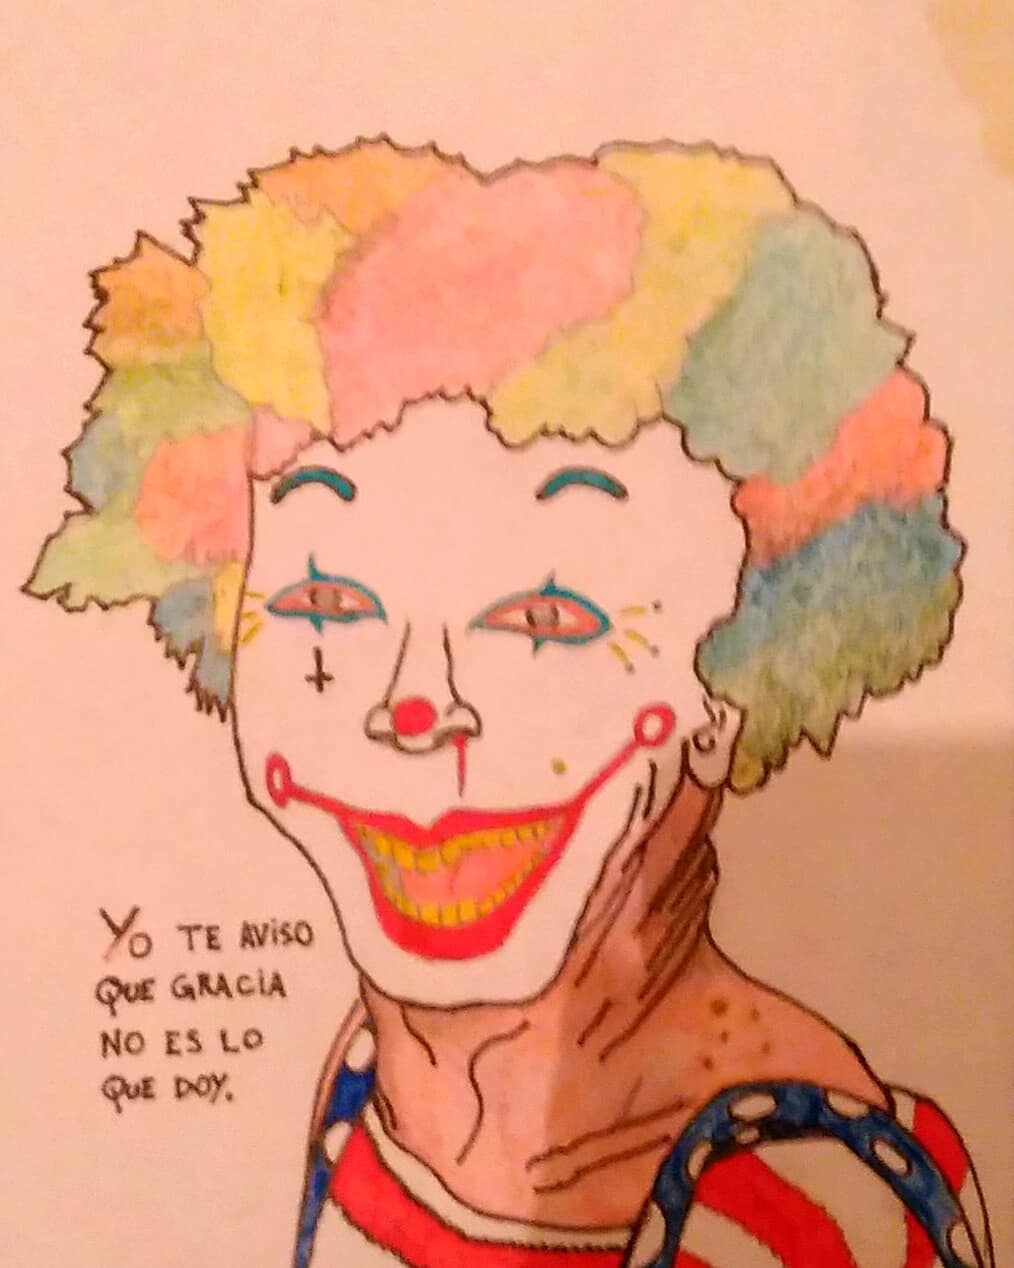 Yo TE AViSO
QUE GRACiA
NO ES LO
QUE DOY.